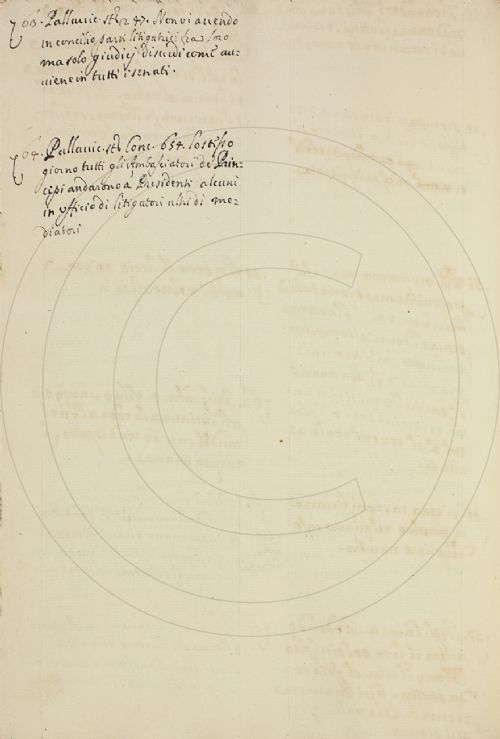 63. Pallavic. st. 247. Non vi avendo
in concilio parti litigatrici fra loro
ma solo giudici discordi come av:
viene in tutti i senati.
64. Pallavic. st. Conc. 634. Lo stesso
giorno tutti gli Ambasciatori de Prin:
cipi andarono a Presidenti alcuni
in ufficio di litigatori altri di me:
diatori